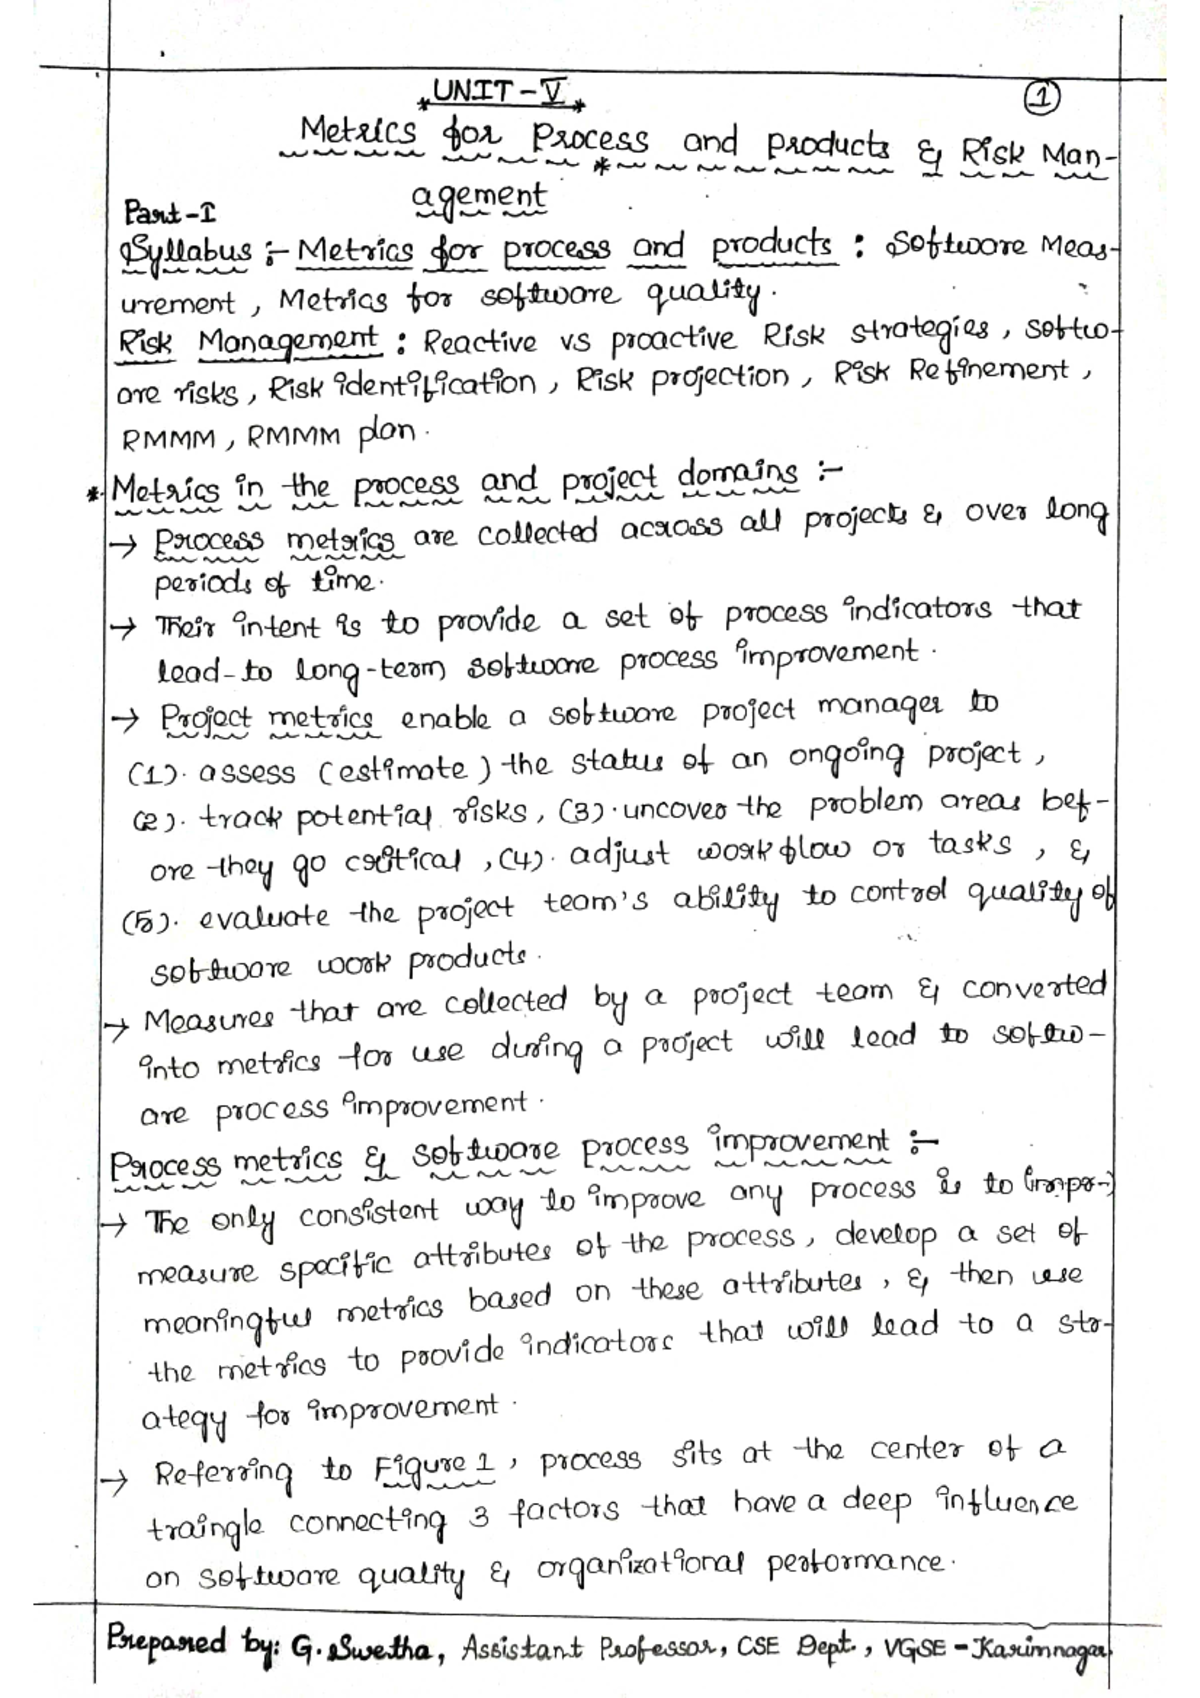 UNIT-V
1
Metrics for Process and Products & Risk Man-
agement
Part-I
Syllabus :- Metrics for process and products : Software Meas-
urement, Metrics for software quality.
Risk Management : Reactive vs proactive Risk strategies, softw-
are risks, Risk identification, Risk projection, Risk Refinement,
RMMM, RMMM plan.
* Metrics in the process and project domains :-
→ Process metrics are collected across all projects & over long
periods of time.
→ Their intent is to provide a set of process indicators that
lead-to long-term software process improvement.
→ Project metrics enable a software project manager to
(1). assess (estimate) the status of an ongoing project,
(2). track potential risks, (3). uncover the problem areas bef-
ore they go critical, (4). adjust workflow or tasks, &
(5). evaluate the project team's ability to control quality of
software work products.
→ Measures that are collected by a project team & converted
into metrics for use during a project will lead to softw-
are process improvement.
Process metrics & software process improvement :-
→ The only consistent way to improve any process is to
measure specific attributes of the process, develop a set of
meaningful metrics based on these attributes, & then use
the metrics to provide indicators that will lead to a str-
ategy for improvement.
→ Referring to Figure 1, process sits at the center of a
traingle connecting 3 factors that have a deep influence
on software quality & organizational performance.
Prepared by: G. Swetha, Assistant Professor, CSE Dept., VGSE - Karimnagar